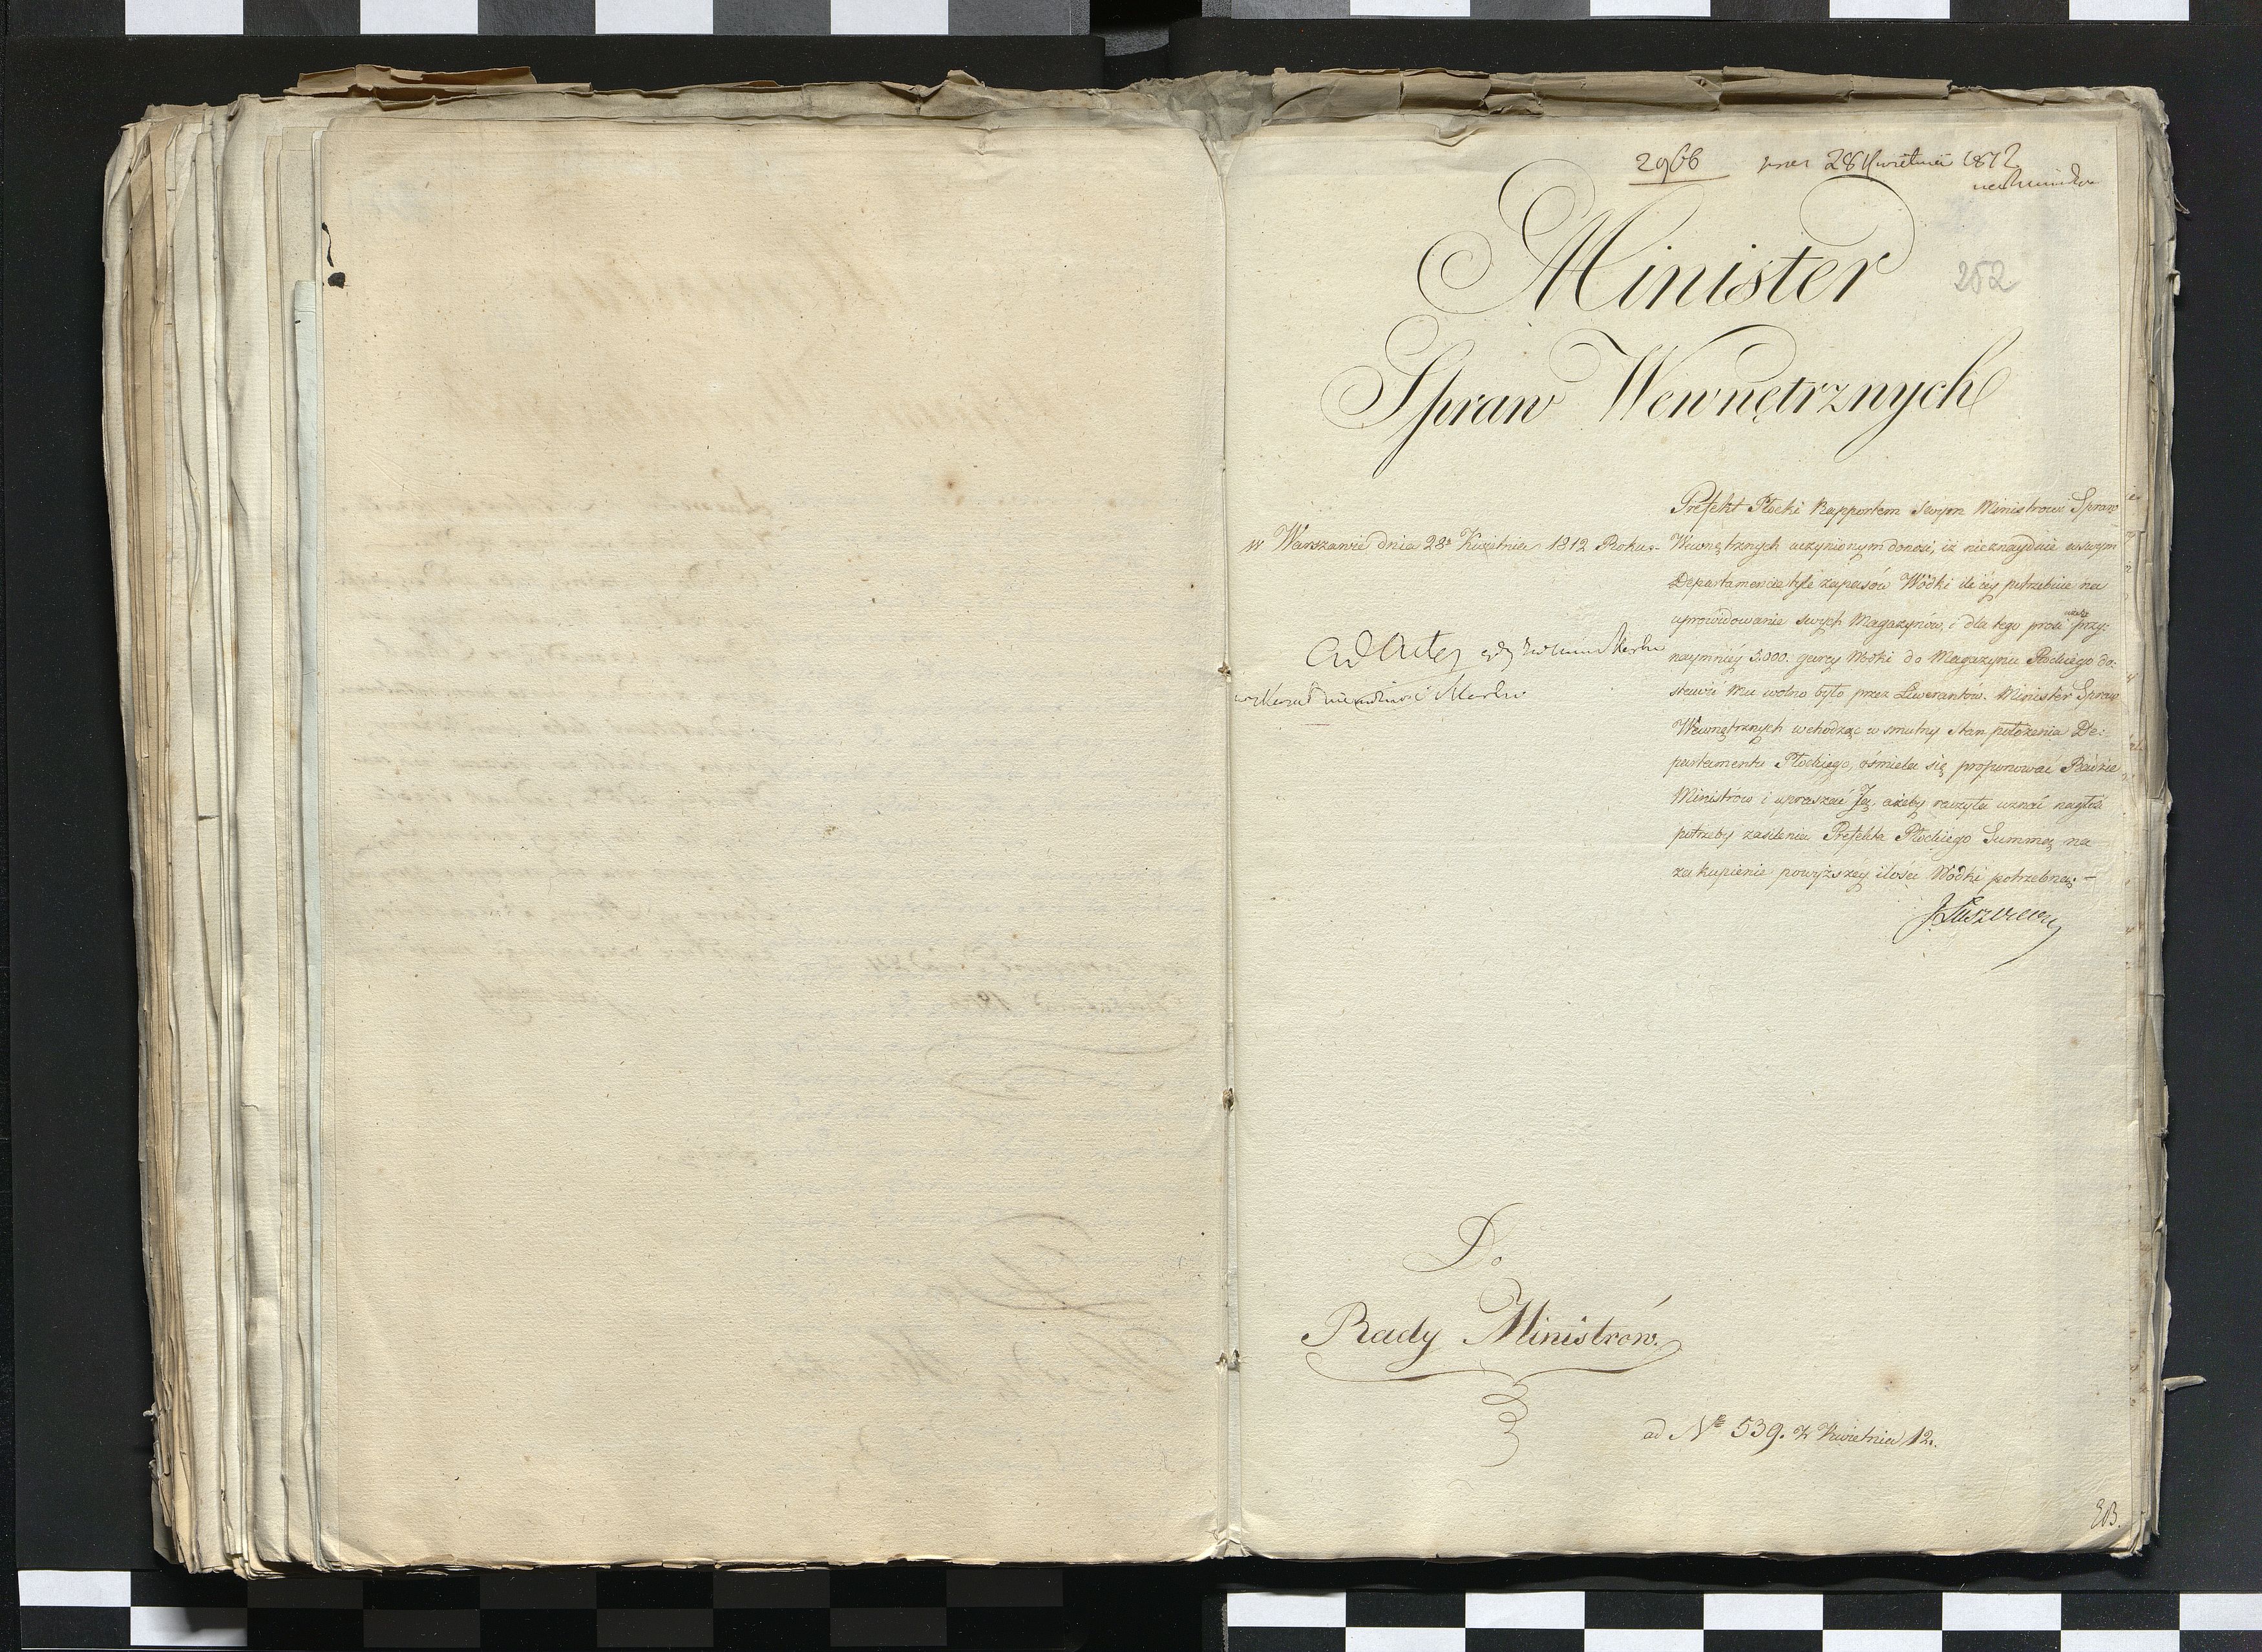 2966 28 Kwietnia 1812
252
Minister
Spraw Wewnętrznych
w Warszawie dnia 28° Kwietnia 1812 Roku.-
Prefekt Płocki Rapportem swym Ministrowi Spraw
Wewnętrznych uczynionym donosi, iż nieznayduie w swym
Departamencie tyle zapasów Wódki ile iey potrzebuie na
uprowidowanie swych Magazynów, i dla tego prosi przy:
naymniéy 5.000. garcy Wódki do Magazynu Płockiego do:
stawić mu wolno było przez Liwerantów. Minister Spraw
Wewnętrznych wchodząc w smutny Stan położenia De:
partamentu Płockiego, ośmiela się proponować Radzie
Ministrów i upraszać Ją, ażeby raczyła uznać nagłość
potrzeby zasilenia Prefekta Płockiego Summą na
zakupienie powyższéy ilości Wódki potrzebną.-
Ad Acta
J Łuszczewsky
Do
Rady Ministrów.
ad Nr 539. z Kwietnia 12.
EB.